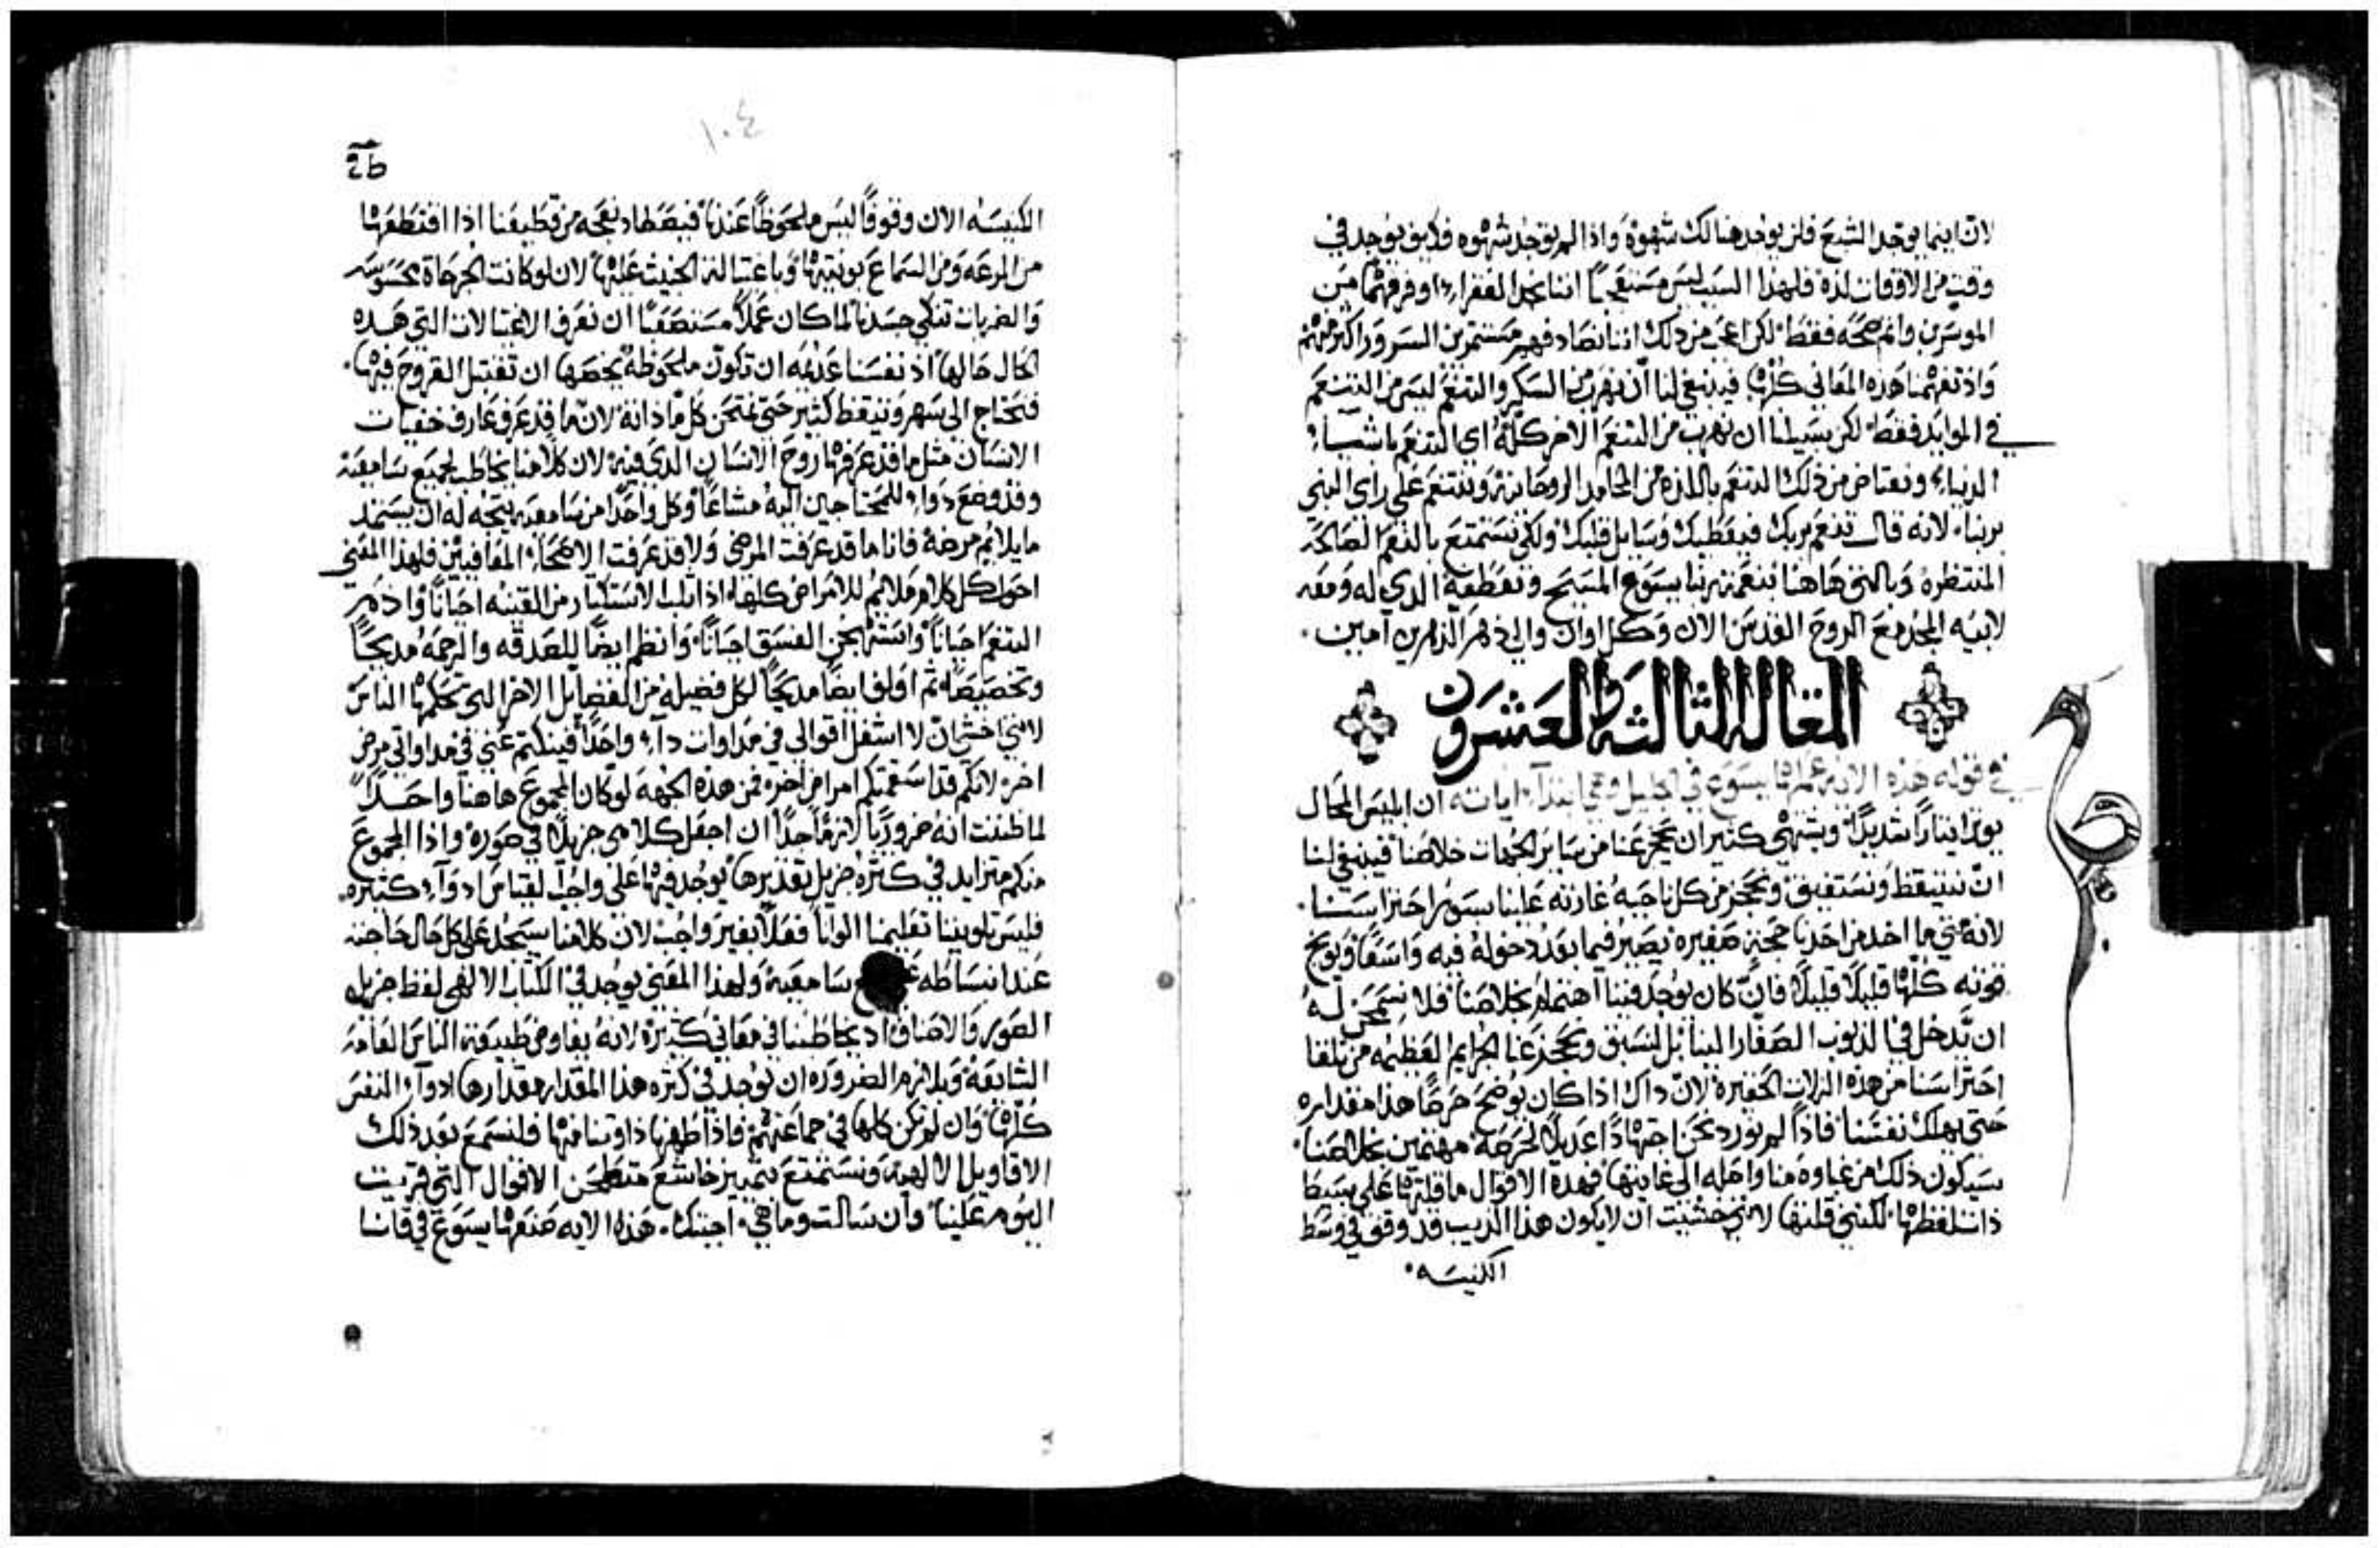 لان اينما يوجد الشبع فلن يوجد هنالك شهوة واذا لم توجد شهوه فكيف توجد في
وقت من الاوقات لذة فلهذا السبب ليس اننا نجد الفقرا اوفر فهما من
الموسرين واتم صحه فقط لكن اعجب من ذلك اننا فهم مستثمرين السرور اكثر منهم
واذ تفهمنا هذه المعاني كلها فينبغي لنا ان نهرب من السكر والتنعم ليس من التنعم
في الموايد فقط لكن سبيلنا ان نهرب من التنعم الاخر كله اي التنعم باشياء
الدنيا ونعتاض من ذلك التنعم باللذه من المحامد الروحانيه ونتنعم على راي النبي
بربنا لانه قال تنعم بربك فيعطيك وسايل قلبك ولكي نستمتع بالنعم الصالحه
المنتظره وبالتي هاهنا بنعمة ربنا يسوع المسيح وتعطفه الدي له ومعه
لابيه المجد مع الروح القدس الان وكل اوان والى دهر الداهرين امين
المقاله الثالثه والعشرون
في قوله هذه الايه عملها يسوع في الجليل وهي ابتداء اياته ان ابليس المحال
يوثر ايثارا شديدا ويشتهي كثيرا ان يحجز عنا من ساير الجهات خلاصنا فينبغي لنا
ان نتيقظ ونستفيق ونحجز من كل ناحيه غارته علينا بسور احتراسنا
لانه متى ما اخد من احدنا حجة صغيره يصير فيما بعد دخوله فيه واسعا ويولج
قوته كلها قليلا قليلا فان كان يوجد فينا اهتمام بخلاصنا فلا نسمحن له
ان يدخل في الذنوب الصغار الينا بل لنسبق ونحجز عنا الجرايم العظيمه من تلقا
احتراسنا من هذه الزلات الحقيرة لان داك اذا كان يوضح حرصا هذا مقداره
حتى يهلك نفسنا فاذا لم نورد نحن اجتهادا عديلا لحرصه مهتمين بخلاصنا
سيكون ذلك من غباوه منا واصله الى غايتها فهده الاقوال ما قلتها على بسيط
ذات لفظها لكنني قلتها لانني خشيت ان لا يكون هذا الذيب قد وقف في وسط
الكنيسه
١٠٤
الكنيسه الان وقوفا ليس ملحوظا عندنا فيصطاد نعجه من قطيعنا اذا اقتطعها
من المرعه ومن السماع بونيتها وباغتياله الخبيث عليها لان لو كانت الجراحات محسوسه
والضربات تنكي جسدنا لما كان عملا مستصعبا ان نعرف الاغتيالات التي هذه
الحال حالها اذ نفسنا عديمه ان تكون ملحوظه يخصها ان تقتبل القروح فيها
فنحتاج الى سهر وتيقظ كثير حتى نمتحن كل منا ذاته لان ما قد عرف عارف خفيات
الانسان مثل ما قد عرفها روح الانسان الدي فيه لان كلامنا يخاطب جميع سامعيه
وقد وضع دواء للمحتاجين اليه مشاعا وكل واحد من سامعيه يتجه له ان يستمد
ما يلايم مرضه فانا ما قد عرفت المرضى ولا قد عرفت الاصحاء المعافيين فلهذا المعنى
احول كل كلام ملايم للامراض كلها اذ اثلب الاستكثار من القنيه احيانا واذم
التنعم احيانا واستهجن الفسق احيانا وانظم ايضا للصدقه والرحمه مديحا
وتخصيصا ثم اولف ايضا مديحا لكل فضيله من الفضايل الاخر التي تحكمها الناس
لانني اخشى ان لا اشغل اقوالي في مداوات داء واحد فينكتم عني في مداواتي مرض
اخر لانكم قد اسقمتكم امراض اخر فمن هذه الجهه لو كان المجموع هاهنا واحدا
لما ظننت انه ضروريا لازما جدا ان اجعل كلامي جزيلا في صوره واذا المجموع
منكم متزايد في كثره جزيل تقديرها يوجد فيها على واجب القياس ادواء كثيره
فليس تلويننا تعليمنا الوانا فعلا بغير واجب لان كلامنا سيجد على كل حال حاجته
عند انبساطه سامعيه ولهذا المعنى يوجد في الكتاب الالهي لفظ جزيل
الصور والاصناف اذ يخاطبنا في معاني كثيرة لانه يفاوض طبيعة الناس العامه
الشايعه ويلزم الضروره ان توجد في كثره هذا المقدار مقدارها ادواء النفس
كلها وان لم تكن كلها في جماعتهم فاذا طهرنا ذواتنا منها فلنسمع بعد ذلك
الاقاويل الالهيه ونستمتع بتمييز خاشع الاقوال التي قريت
اليوم علينا وان سالت وما هي اجبتك هذه الايه صنعها يسوع في قانا